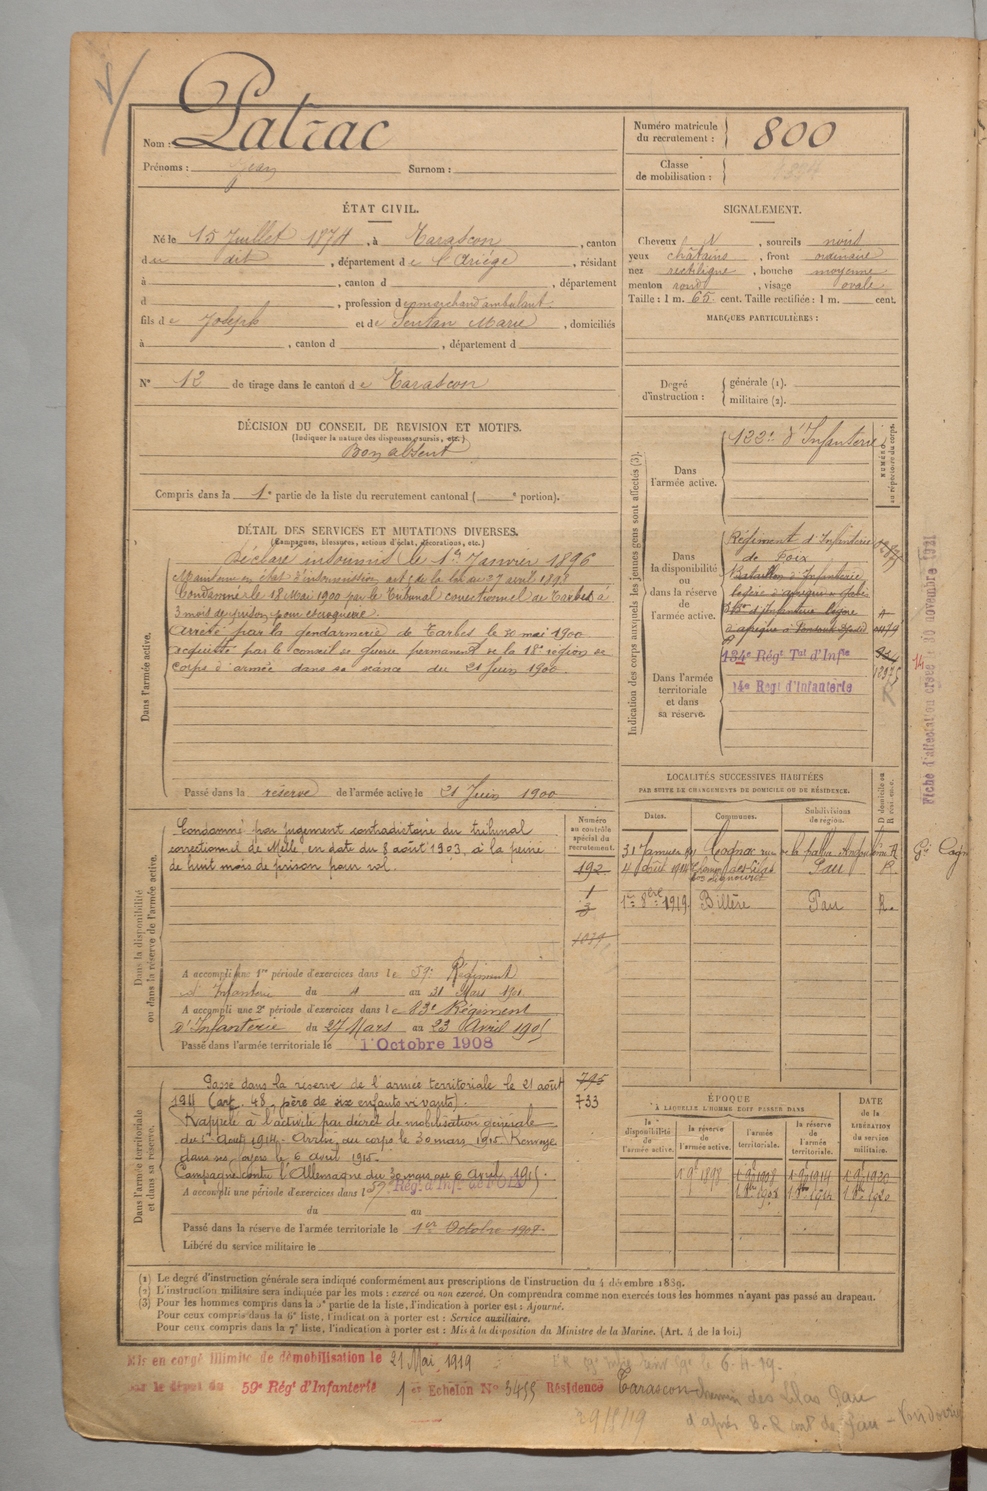 Nom : Patrac
Prénoms : Jean Surnom :
Numéro matricule du recrutement : 800
Classe de mobilisation :
ÉTAT CIVIL.
Né le 15 Juillet 1874, à Tarascon, canton
du dit, département de l'Ariège, résidant
à , canton d , département
d , profession de marchand ambulant
fils de Joseph et de Sentan Marie, domiciliés
à , canton d , département d
N° 12 de tirage dans le canton de Tarascon
SIGNALEMENT.
Cheveux N, sourcils noirs
yeux châtains, front ordinaire
nez rectiligne, bouche moyenne
menton rond, visage ovale
Taille : 1 m. 65 cent. Taille rectifiée : 1 m. cent.
MARQUES PARTICULIÈRES :
Degré d'instruction : générale (1).
militaire (2).
DÉCISION DU CONSEIL DE REVISION ET MOTIFS.
(Indiquer la nature des dispenses, sursis, etc.)
Bon absent
Compris dans la 1e partie de la liste du recrutement cantonal ( e portion).
DÉTAIL DES SERVICES ET MUTATIONS DIVERSES.
(Campagnes, blessures, actions d'éclat, décorations, etc.)
Dans l'armée active.
Déclaré insoumis le 1er Janvier 1896
Maintenu en état d'insoumission art de la loi du 27 avril 1898
Condamné le 18 Mai 1900 par le Tribunal correctionnel de Tarbes à
3 mois de prison pour escroquerie
Arrêté par la gendarmerie de Tarbes le 30 mai 1900
acquitté par le conseil de guerre permanent de la 18e région de
corps d'armée dans sa séance du 21 Juin 1900.
Passé dans la réserve de l'armée active le 21 Juin 1900
Indication des corps auxquels les jeunes gens sont affectés (3).
NUMÉRO au répertoire du corps.
Dans l'armée active.
122e d'Infanterie
Dans la disponibilité ou dans la réserve de l'armée active.
Régiment d'Infanterie
de Foix
Bataillon d'Infanterie
légère d'afrique
d'Infanterie légère
d'afrique
134e Régt Tal d'Infie
Dans l'armée territoriale et dans sa réserve.
14e Régt d'Infanterie
Fiche d'affectation créée le 30 novembre 1931
14
LOCALITÉS SUCCESSIVES HABITÉES
PAR SUITE DE CHANGEMENTS DE DOMICILE OU DE RÉSIDENCE.
Dates. Communes. Subdivisions de région. D domicile ou R résidence.
31 Janvier Cognac R
Pau R.
1er 8bre 1919 Billère Pau R.
Dans la disponibilité ou dans la réserve de l'armée active.
Numéro au contrôle spécial du recrutement.
Condamné par jugement contradictoire du tribunal
correctionnel de Melle en date du 8 août 1903, à la peine
de huit mois de prison pour vol.
192
1
3
A accompli une 1re période d'exercices dans le 59e Régiment
d'Infanterie du 4 au 31 Mars 1901
A accompli une 2e période d'exercices dans le 83e Régiment
d'Infanterie du 27 Mars au 23 Avril 1905
Passé dans l'armée territoriale le 1 Octobre 1908
Dans l'armée territoriale et dans sa réserve.
Passé dans la réserve de l'armée territoriale le 21 août
1911 (art. 48, père de six enfants vivants).
Rappelé à l'activité par décret de mobilisation générale
du 1er Août 1914. Arrivé au corps le 30 mars 1915. Renvoyé
dans ses foyers le 6 avril 1915.
Campagne contre l'Allemagne du 30 mars au 6 Avril 1915.
795
733
A accompli une période d'exercices dans l 59e Régt d'Infie de FOIX
du au
Passé dans la réserve de l'armée territoriale le 1er Octobre 1908.
Libéré du service militaire le
ÉPOQUE
À LAQUELLE L'HOMME DOIT PASSER DANS
DATE de la LIBÉRATION du service militaire.
la disponibilité de l'armée active. la réserve de l'armée active. l'armée territoriale. la réserve de l'armée territoriale.
1 9e 1898 1 9e 1908 1 9e 1914 1 9e 1920
1 8bre 1908 1 8bre 1914 1 8bre 1920
(1) Le degré d'instruction générale sera indiqué conformément aux prescriptions de l'instruction du 4 décembre 1889.
(2) L'instruction militaire sera indiquée par les mots : exercé ou non exercé. On comprendra comme non exercés tous les hommes n'ayant pas passé au drapeau.
(3) Pour les hommes compris dans la 5e partie de la liste, l'indication à porter est : Ajourné.
Pour ceux compris dans la 6e liste, l'indication à porter est : Service auxiliaire.
Pour ceux compris dans la 7e liste, l'indication à porter est : Mis à la disposition du Ministre de la Marine. (Art. 4 de la loi.)
Mis en congé illimité de démobilisation le 21 Mai 1919
par le dépôt du 59e Régt d'Infanterie 1er Echelon N° 3455 Résidence Tarascon chemin des Lilas Pau
29/5/19